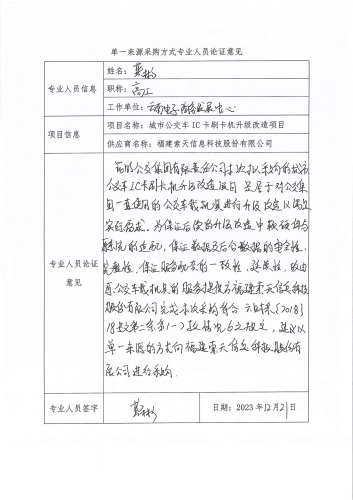 单一来源采购方式专业人员论证意见
专业人员信息
姓名：
职称：高工
工作单位：云南电子商务发展中心
项目信息
项目名称：城市公交车IC卡刷卡机升级改造项目
供应商名称：福建索天信息科技股份有限公司
专业人员论证意见
昆明公交集团有限责任公司本次拟采购的城市
公交车IC卡刷卡机升级改造项目是属于对公交集
团一直使用的公交车载机具进行升级改造以满足
实际需求。为保证后续的升级改造中软硬件与
系统的匹配，保证数据及后台数据的安全性、
完整性，保证服务的一致性、延续性，故由
原公交车载机具的服务提供方福建索天信息科技
股份有限公司完成本次采购符合
18号文第二条第(一)款情况
单一来源的方式向福建索天信息科技股份有
限公司进行采购。
专业人员签字
日期：2023年12月21日